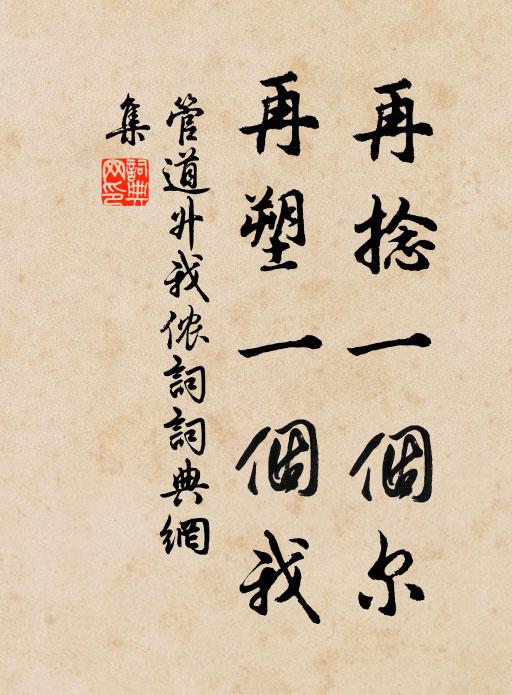 再捻一個尔
再塑一個我
管道升我侬詞詞典網
集
詞典
网印